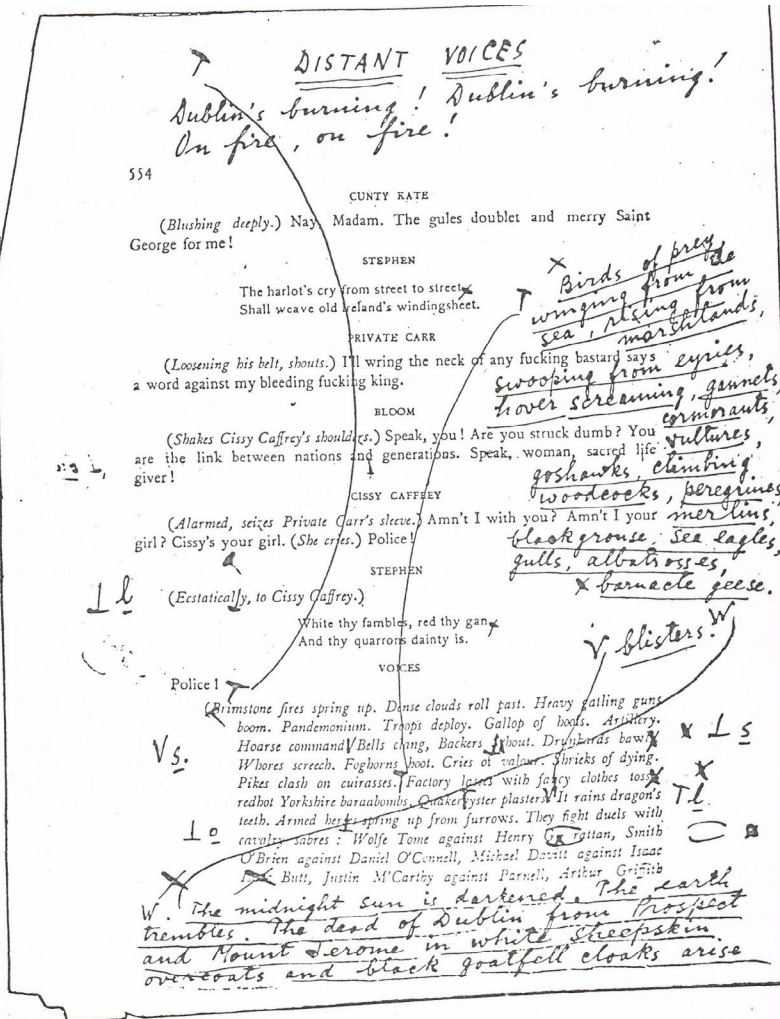 DISTANT VOICES
Dublin's burning! Dublin's burning!
On fire, on fire!
554
CUNTY KATE
(Blushing deeply.) Nay, Madam. The gules doublet and merry Saint
George for me!
STEPHEN
The harlot's cry from street to street
Shall weave old Ireland's windingsheet.
PRIVATE CARR
(Loosening his belt, shouts.) I'll wring the neck of any fucking bastard says
a word against my bleeding fucking king.
BLOOM
(Shakes Cissy Caffrey's shoulders.) Speak, you! Are you struck dumb? You
are the link between nations and generations. Speak, woman, sacred life
giver!
CISSY CAFFREY
(Alarmed, seizes Private Carr's sleeve.) Amn't I with you? Amn't I your
girl? Cissy's your girl. (She cries.) Police!
STEPHEN
(Ecstatically, to Cissy Caffrey.)
White thy fambles, red thy gan
And thy quarrons dainty is.
VOICES
Police!
(Brimstone fires spring up. Dense clouds roll past. Heavy gatling guns
boom. Pandemonium. Troops deploy. Gallop of hoofs. Artillery.
Hoarse command Bells clang, Backers shout. Drunkards bawl
Whores screech. Foghorns hoot. Cries of valour. Shrieks of dying.
Pikes clash on cuirasses. Factory lasses with fancy clothes toss
redhot Yorkshire baraabombs. Quakeroyster plasters. It rains dragon's
teeth. Armed heroes spring up from furrows. They fight duels with
cavalry sabres : Wolfe Tome against Henry Grattan, Smith
O'Brien against Daniel O'Connell, Michael Davitt against Isaac
Butt, Justin M'Carthy against Parnell, Arthur Griffith
Birds of prey
winging from de
sea, rising from
marshlands,
swooping from eyries,
hover screaming, gannets,
cormorants,
vultures,
goshawks, climbing
woodcocks, peregrines,
merlins,
blackgrouse, sea eagles,
gulls, albatrosses,
barnacle geese.
V blisters.
W
T
T
T
⊥ l
V s.
⊥ o
⊥ s
T l
W. The midnight sun is darkened. The earth
trembles. The dead of Dublin from Prospect
and Mount Jerome in white sheepskin
overcoats and black goatfell cloaks arise